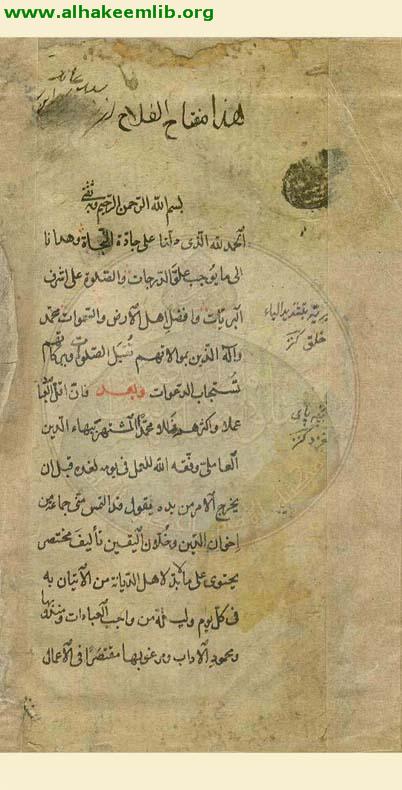 www.alhakeemlib.org
هذا مفتاح الفلاح
بسم الله الرحمن الرحيم وبه ثقتي
الحمد لله الذي دلنا على جادة النجاة وهدانا
الى ما يوجب علو الدرجات والصلوة على اشرف
البريات وافضل اهل الارض والسموات محمد
وآله الذين بموالاتهم تقبل الصلوات وببركاتهم
تستجاب الدعوات وبعد فان اقل العباد
عملا واكثرهم زللا محمد المشتهر ببهاء الدين
العاملي وفقه الله للعمل في يومه لغده قبل ان
يخرج الامر من يده يقول قد التمس مني جماعة من
اخوان الدين وخلان اليقين تأليف مختصر
يحتوى على ما لابد لاهل الديانة من الاتيان به
في كل يوم وليلة من واجب العبادات ومندوبها
ومحمود الاداب ومرغوبها مقتصرا في الاعمال
برية بتشديد الياء
خلق